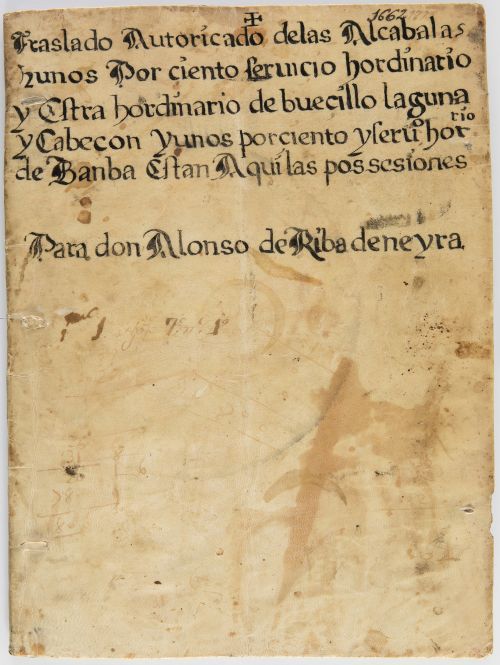 ✝ 1662
Traslado Autoricado delas Alcabalas
hunos Por ciento seruicio hordinario
y Estra hordinario de buecillo laguna
y Cabecon yunos porciento yseruº hor rio
de Banba Estan Aqui las possesiones
Para don Alonso de Ribadeneyra.